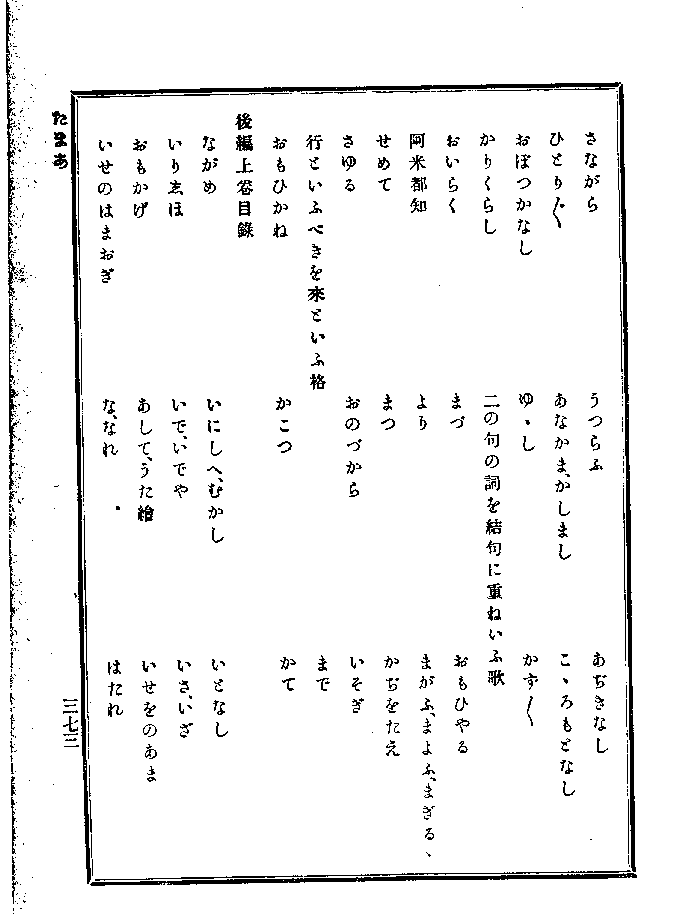 さながら　うつらふ　あぢきなし
ひとり〱　あなかま、かしまし　こゝろもとなし
おぼつかなし　ゆゝし　かず〱
かりくらし　二の句の詞を結句に重ねいふ歌
おいらく　まづ　おもひやる
阿米都知　より　まがふ、まよふ、まぎる、
せめて　まつ　かぢをたえ
さゆる　おのづから　いそぎ
行といふべきを來といふ格　まで
おもひかね　かこつ　かて
後編上卷目錄
ながめ　いにしへ、むかし　いとなし
いりゑほ　いで、いでや　いさ、いざ
おもかげ　あして、うた繪　いせをのあま
いせのはまおぎ　な、なれ　はたれ
たまあ
三七三